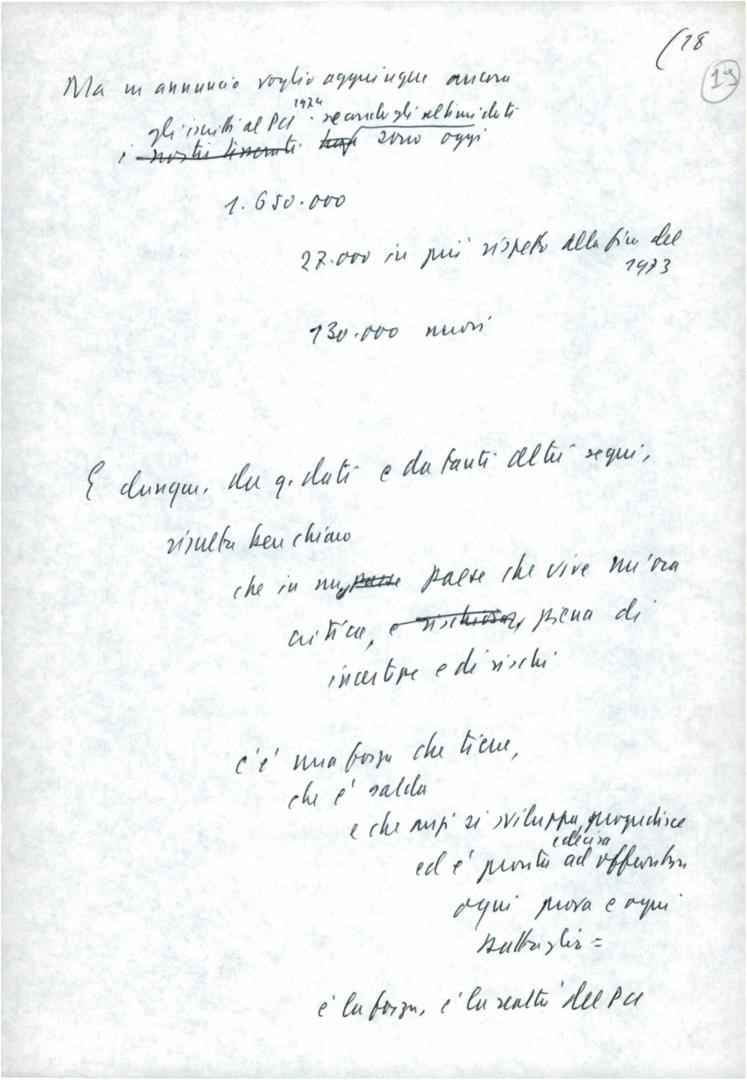 (18
19
Ma un annuncio voglio aggiungere ancora
gli iscritti al PCI 1974 secondo gli ultimi dati
i nostri sono oggi
1.650.000
27.000 in più rispetto alla fine del
1973
130.000 nuovi
E dunque, da q. dati e da tanti altri segni,
risulta ben chiaro
che in un paese paese che vive un'ora
critica, e rischiosa, piena di
incertezze e di rischi
c'è una forza che tiene,
che è salda
e che anzi si sviluppa, progredisce
e decisa
ed è pronta ad affrontare
ogni prova e ogni
battaglia =
è la forza, è la realtà del PCI